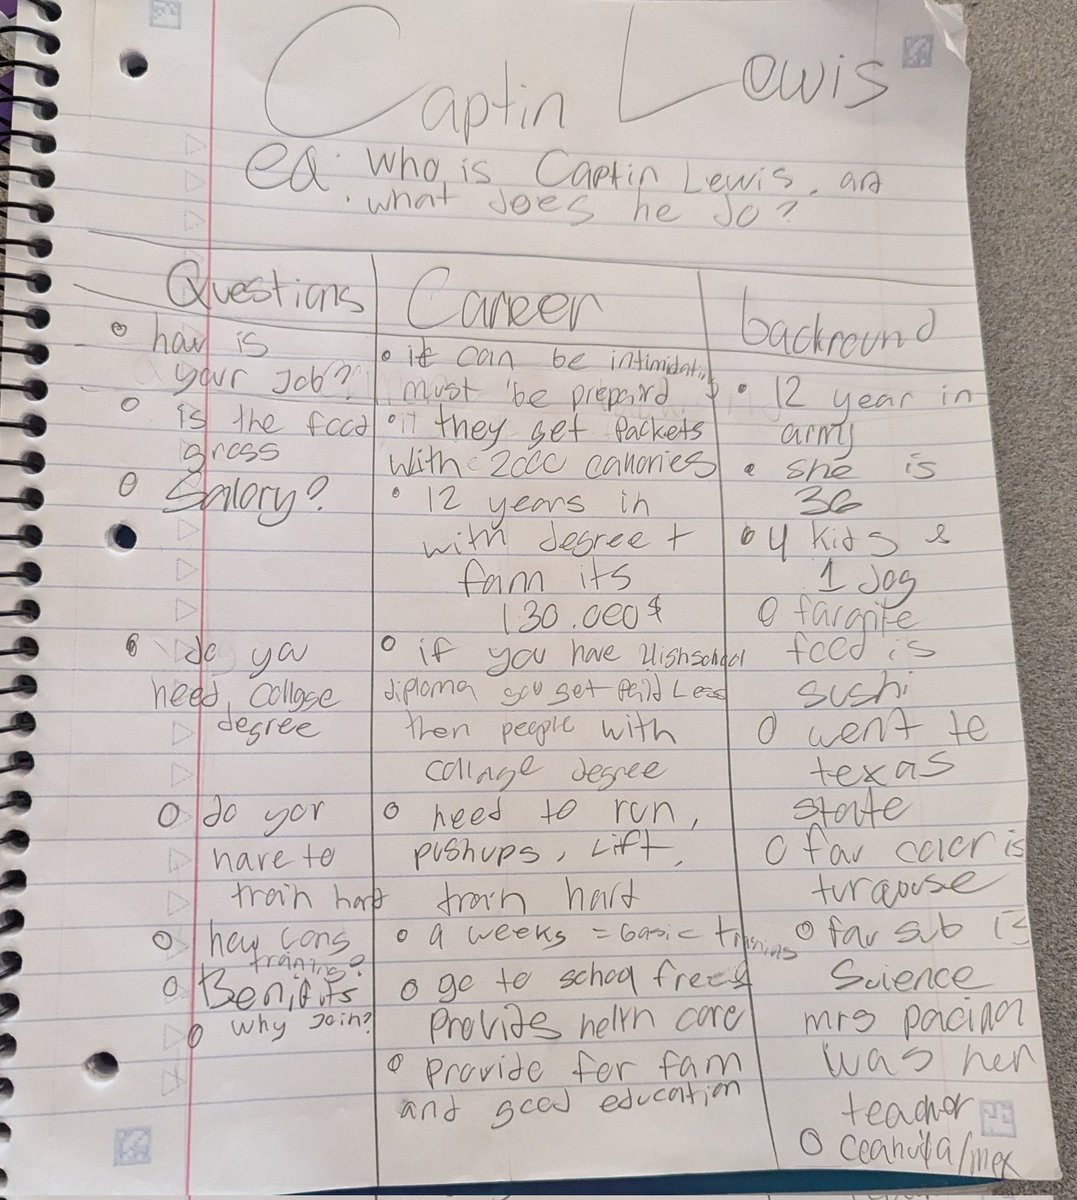 Captin Lewis
EQ: Who is Captin Lewis, and
what does he do?
Questions
how is
your Job?
is the food
gross
Salory?
do you
need collage
degree
do you
have to
train hard
how long
training?
Benifits
why join?
Career
it can be intimidating
must be prepaird
they get Packets
with 2000 calories
12 years in
with degree +
fam its
130.000$
if you have Highschool
diploma you get Paild Less
then people with
collage degree
need to run,
pushups, Lift,
train hard
9 weeks = basic training
go to school free &
Provids helth care
provide for fam
and good education
backround
12 year in
army
she is
36
4 kids &
1 Dog
favorite
food is
sushi
went to
texas
state
fav color is
turqouse
fav sub is
Science
mrs
was her
teacher